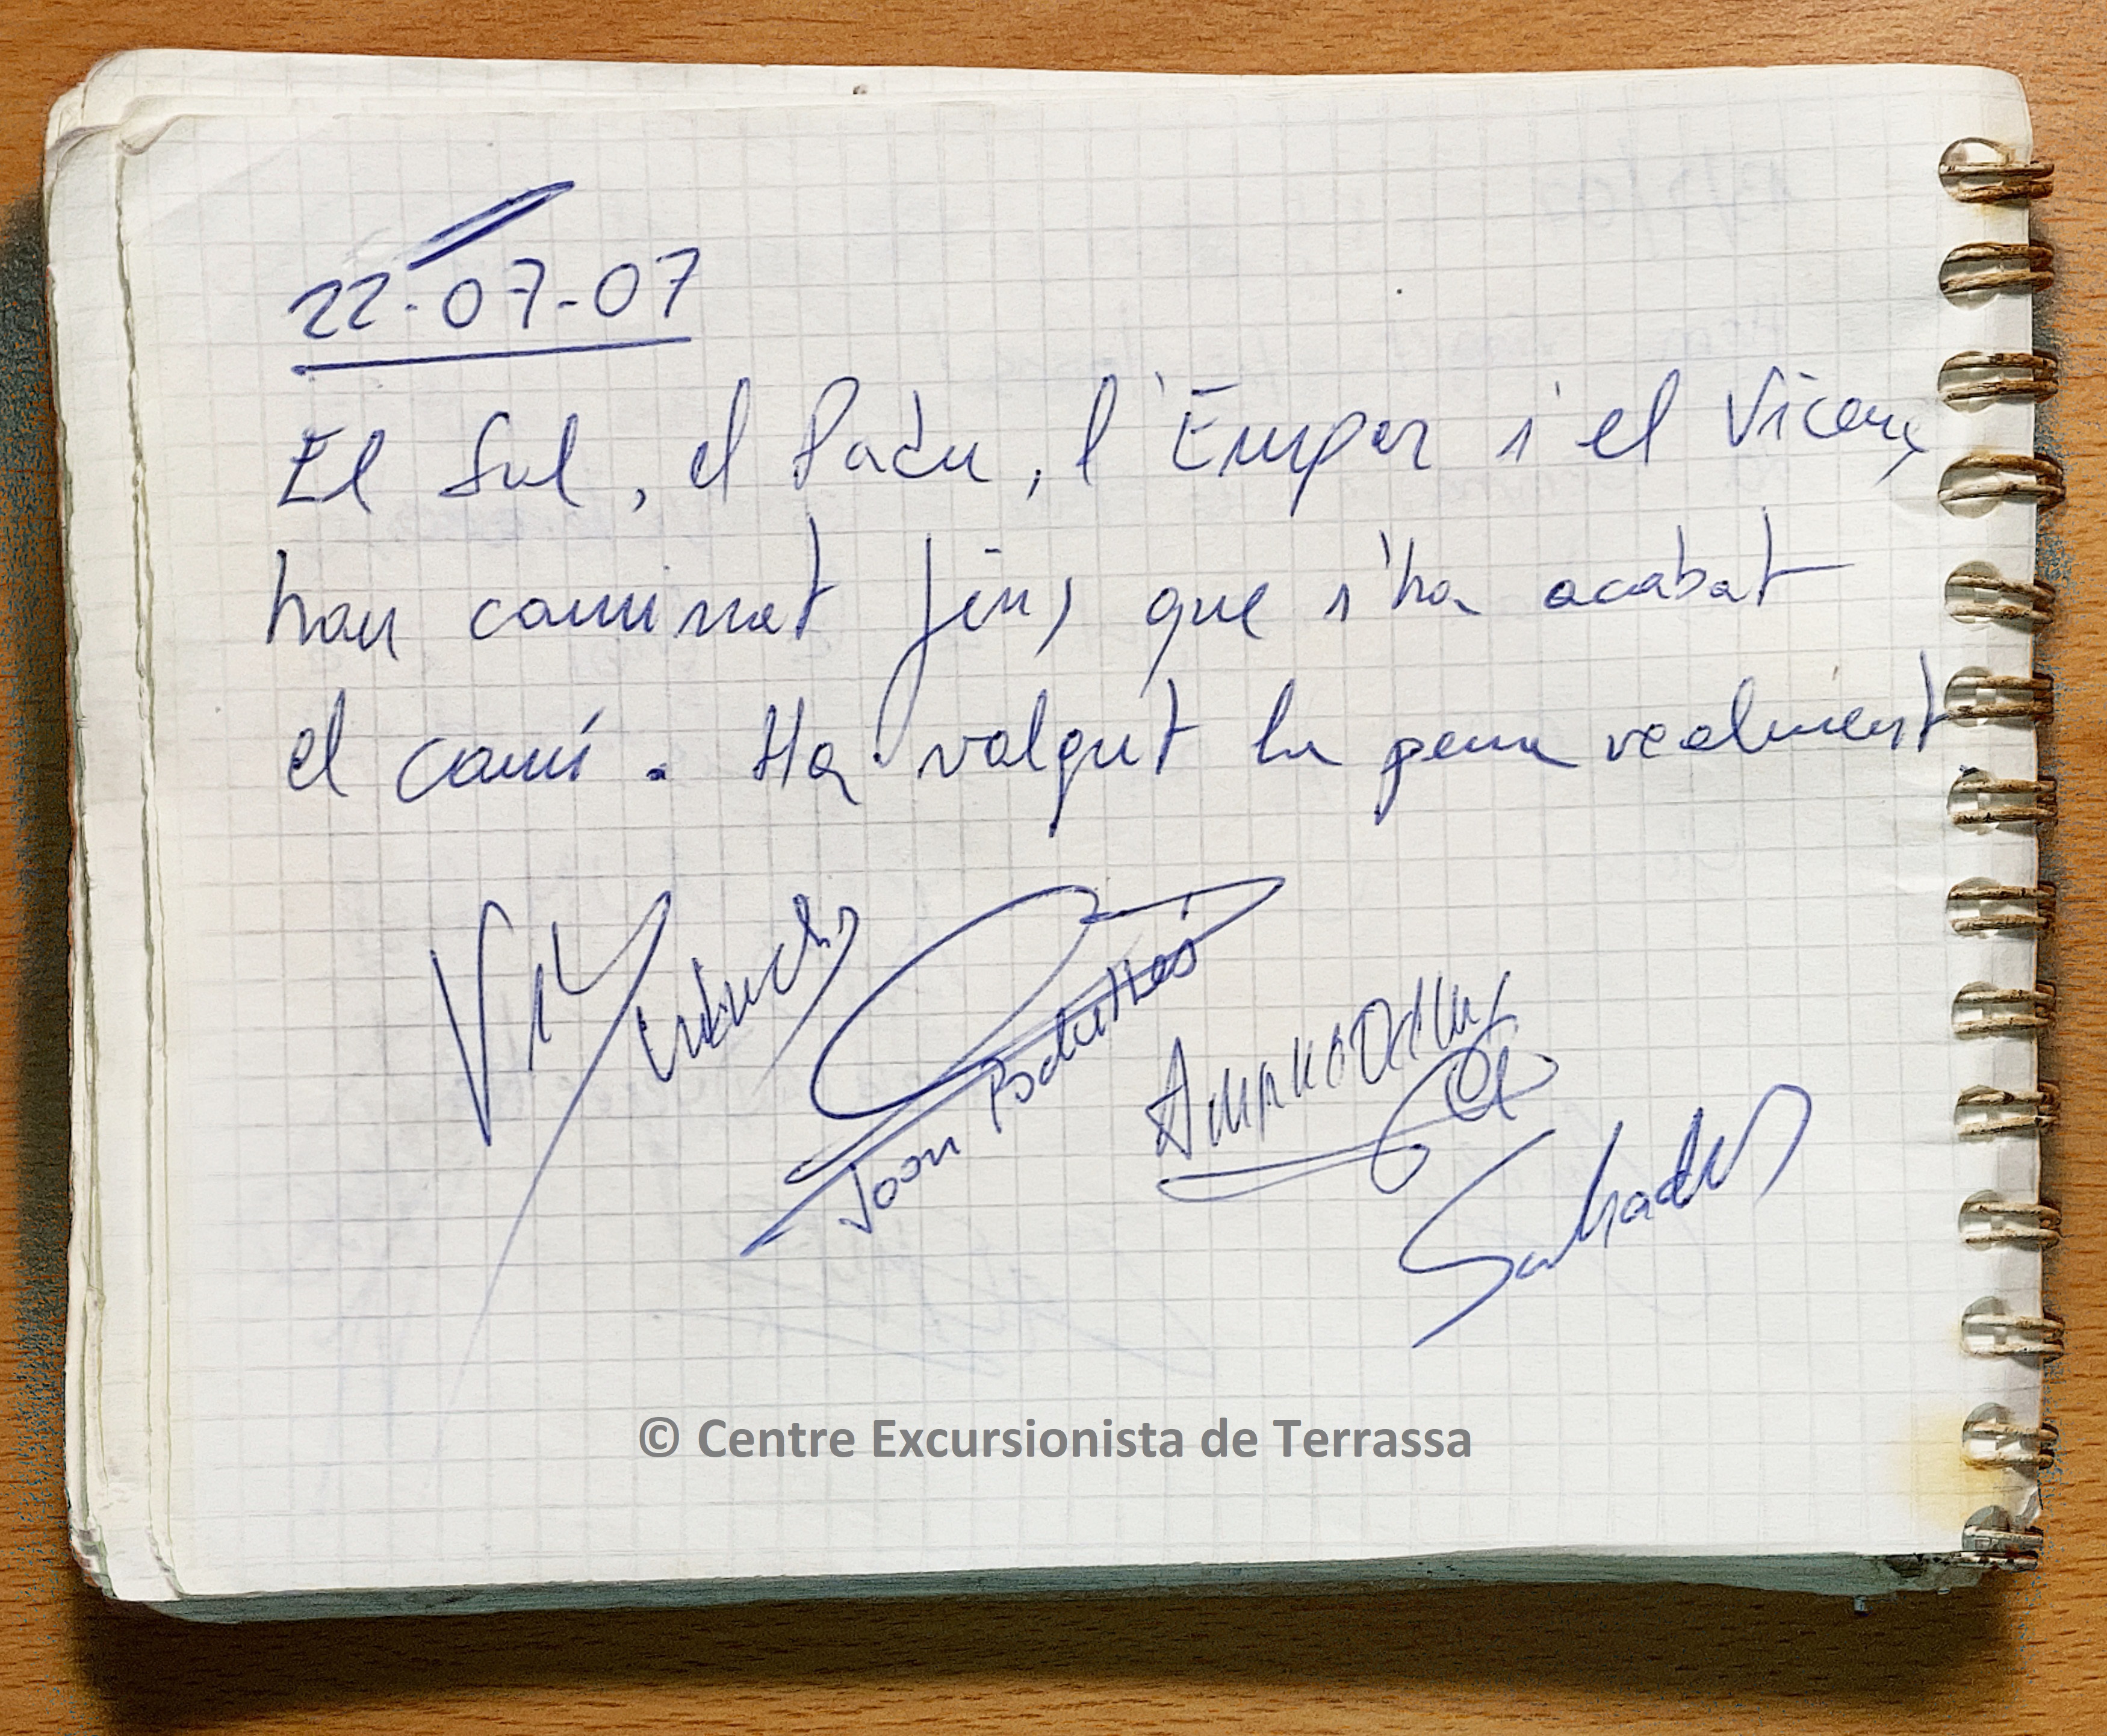 22-07-07
El Sul, el Padu, l'Emper i el Vicenç
han caminat fins que s'ha acabat
el camí. Ha valgut la pena realment.
Joan Padullés
Salvador
© Centre Excursionista de Terrassa